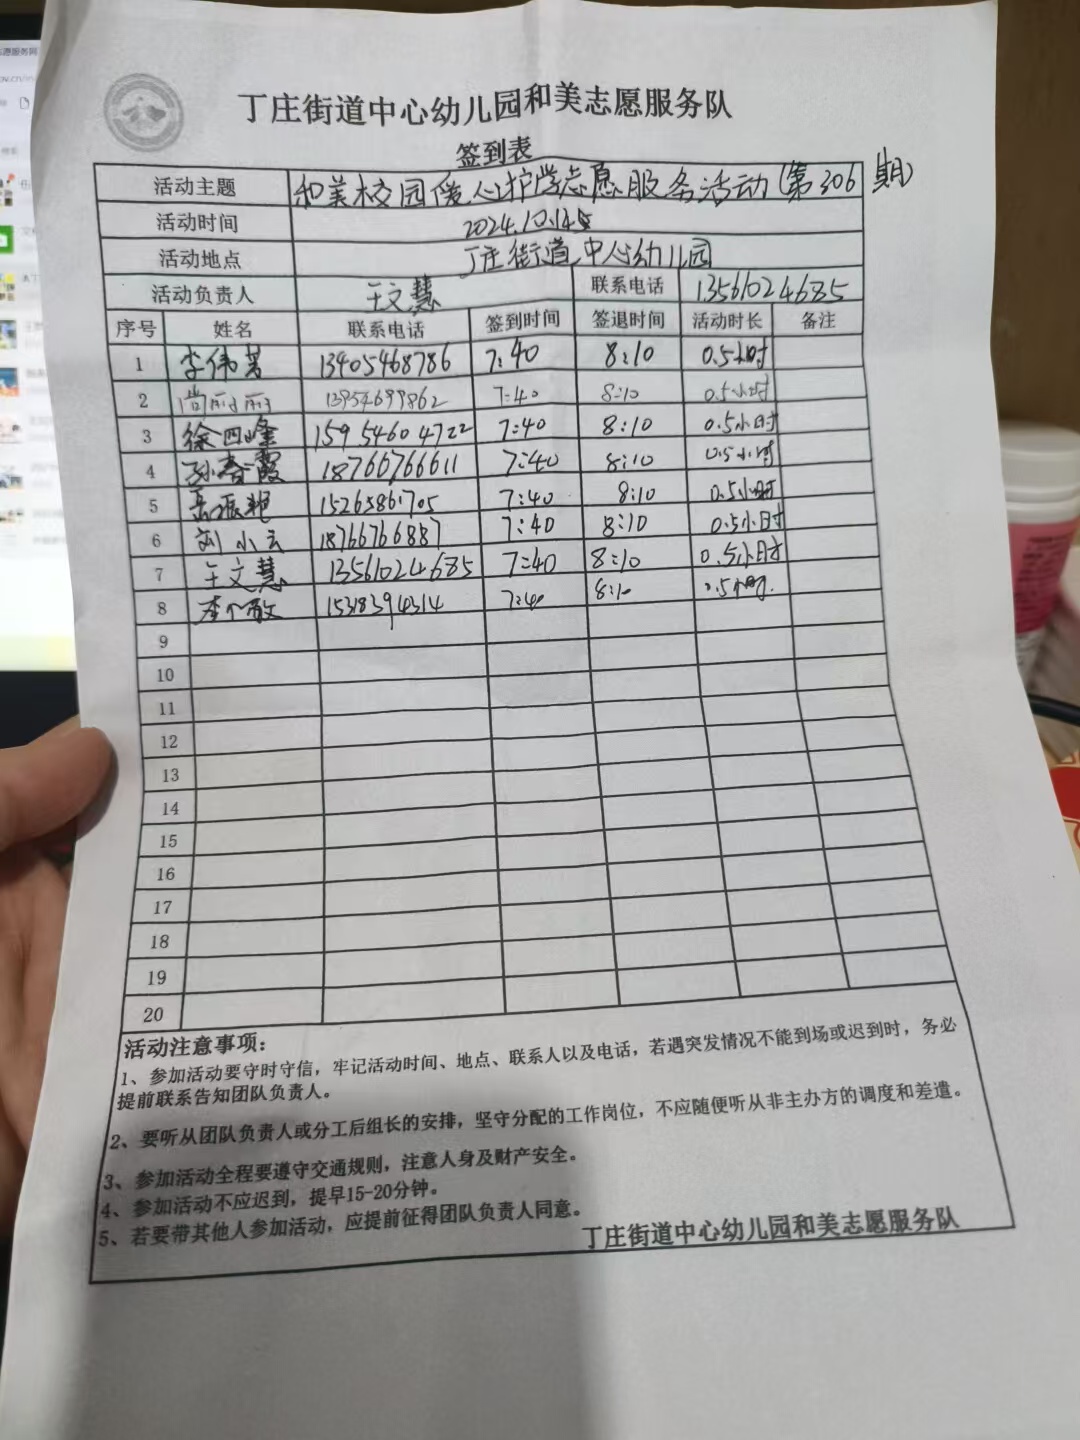 丁庄街道中心幼儿园和美志愿服务队
签到表
活动主题 和美校园暖心护学志愿服务活动(第306期)
活动时间 2024.10.14
活动地点 丁庄街道中心幼儿园
活动负责人 王文慧 联系电话 13561024685
序号 姓名 联系电话 签到时间 签退时间 活动时长 备注
1 李伟芳 13405468786 7:40 8:10 0.5小时
2 尚丽丽 13954699862 7:40 8:10 0.5小时
3 徐四峰 15954604722 7:40 8:10 0.5小时
4 孙春霞 18766766611 7:40 8:10 0.5小时
5 15265861705 7:40 8:10 0.5小时
6 刘小云 18766766887 7:40 8:10 0.5小时
7 王文慧 13561024685 7:40 8:10 0.5小时
8 15318394314 7:40 8:10 0.5小时
9
10
11
12
13
14
15
16
17
18
19
20
活动注意事项：
1、参加活动要守时守信，牢记活动时间、地点、联系人以及电话，若遇突发情况不能到场或迟到时，务必
提前联系告知团队负责人。
2、要听从团队负责人或分工后组长的安排，坚守分配的工作岗位，不应随便听从非主办方的调度和差遣。
3、参加活动全程要遵守交通规则，注意人身及财产安全。
4、参加活动不应迟到，提早15-20分钟。
5、若要带其他人参加活动，应提前征得团队负责人同意。
丁庄街道中心幼儿园和美志愿服务队